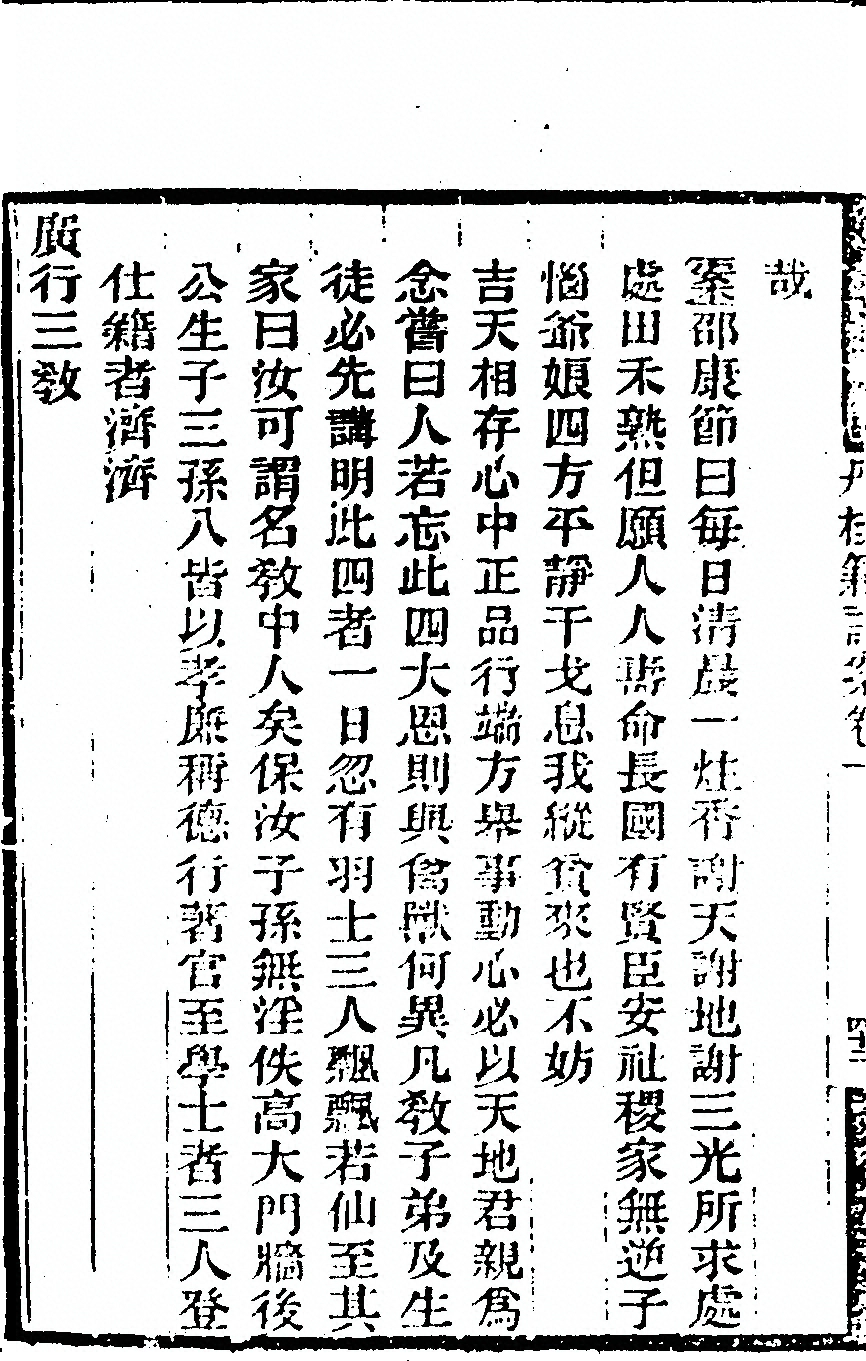 哉
案邵康節曰每日清晨一炷香謝天謝地謝三光所求處
處田禾熟但願人人壽命長國有賢臣安社稷家無逆子
惱爺娘四方平靜干戈息我縱貧來也不妨
吉天相存心中正品行端方舉事動心必以天地君親為
念嘗曰人若忘此四大恩則與禽獸何異凡教子弟及生
徒必先講明此四者一日忽有羽士三人飄飄若仙至其
家曰汝可謂名教中人矣保汝子孫無淫佚高大門牆後
公生子三孫八皆以孝廉稱德行著官至學士者三人登
仕籍者濟濟
廣行三教
丹桂籍註案卷一
四十二